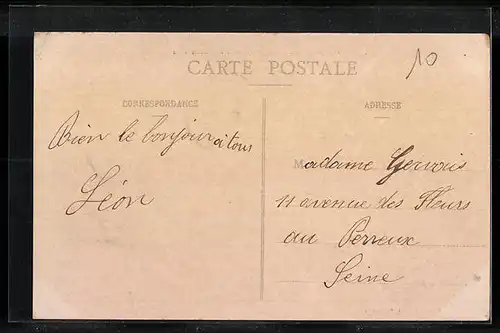 10
CARTE POSTALE
CORRESPONDANCE
ADRESSE
Bien le bonjour à tous
Léon
Madame Gervais
11 avenue des Fleurs
au Perreux
Seine